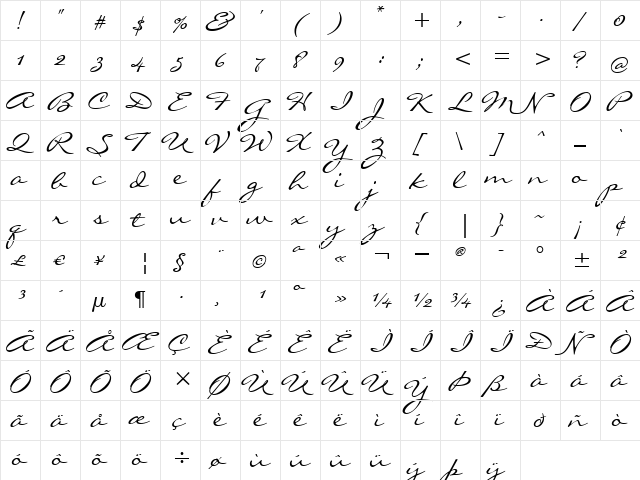 ! " # $ % & ' ( ) * + , - . / 0
1 2 3 4 5 6 7 8 9 : ; < = > ? @
A B C D E F G H I J K L M N O P
Q R S T U V W X Y Z [ \ ] ^ _ `
a b c d e f g h i j k l m n o p
q r s t u v w x y z { | } ~ ¡ ¢
£ € ¥ ¦ § ¨ © ª « ¬ – ® - ° ± ²
³ ´ µ ¶ · ¸ ¹ º » ¼ ½ ¾ ¿ À Á Â
Ã Ä Å Æ Ç È É Ê Ë Ì Í Î Ï Ð Ñ Ò
Ó Ô Õ Ö × Ø Ù Ú Û Ü Ý Þ ß à á â
ã ä å æ ç è é ê ë ì í î ï ð ñ ò
ó ô õ ö ÷ ø ù ú û ü ý þ ÿ